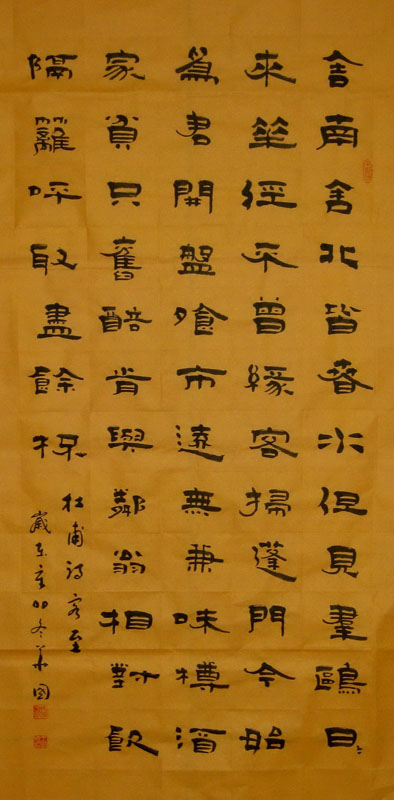 舍南舍北皆春水但見羣鷗日〻
來華徑不曾緣客掃蓬門今始
爲君開盤飧市遠無兼味樽酒
家貧只舊醅肯與鄰翁相對飲
隔籬呼取盡餘杯
杜甫詩客至
歲在辛卯冬華國